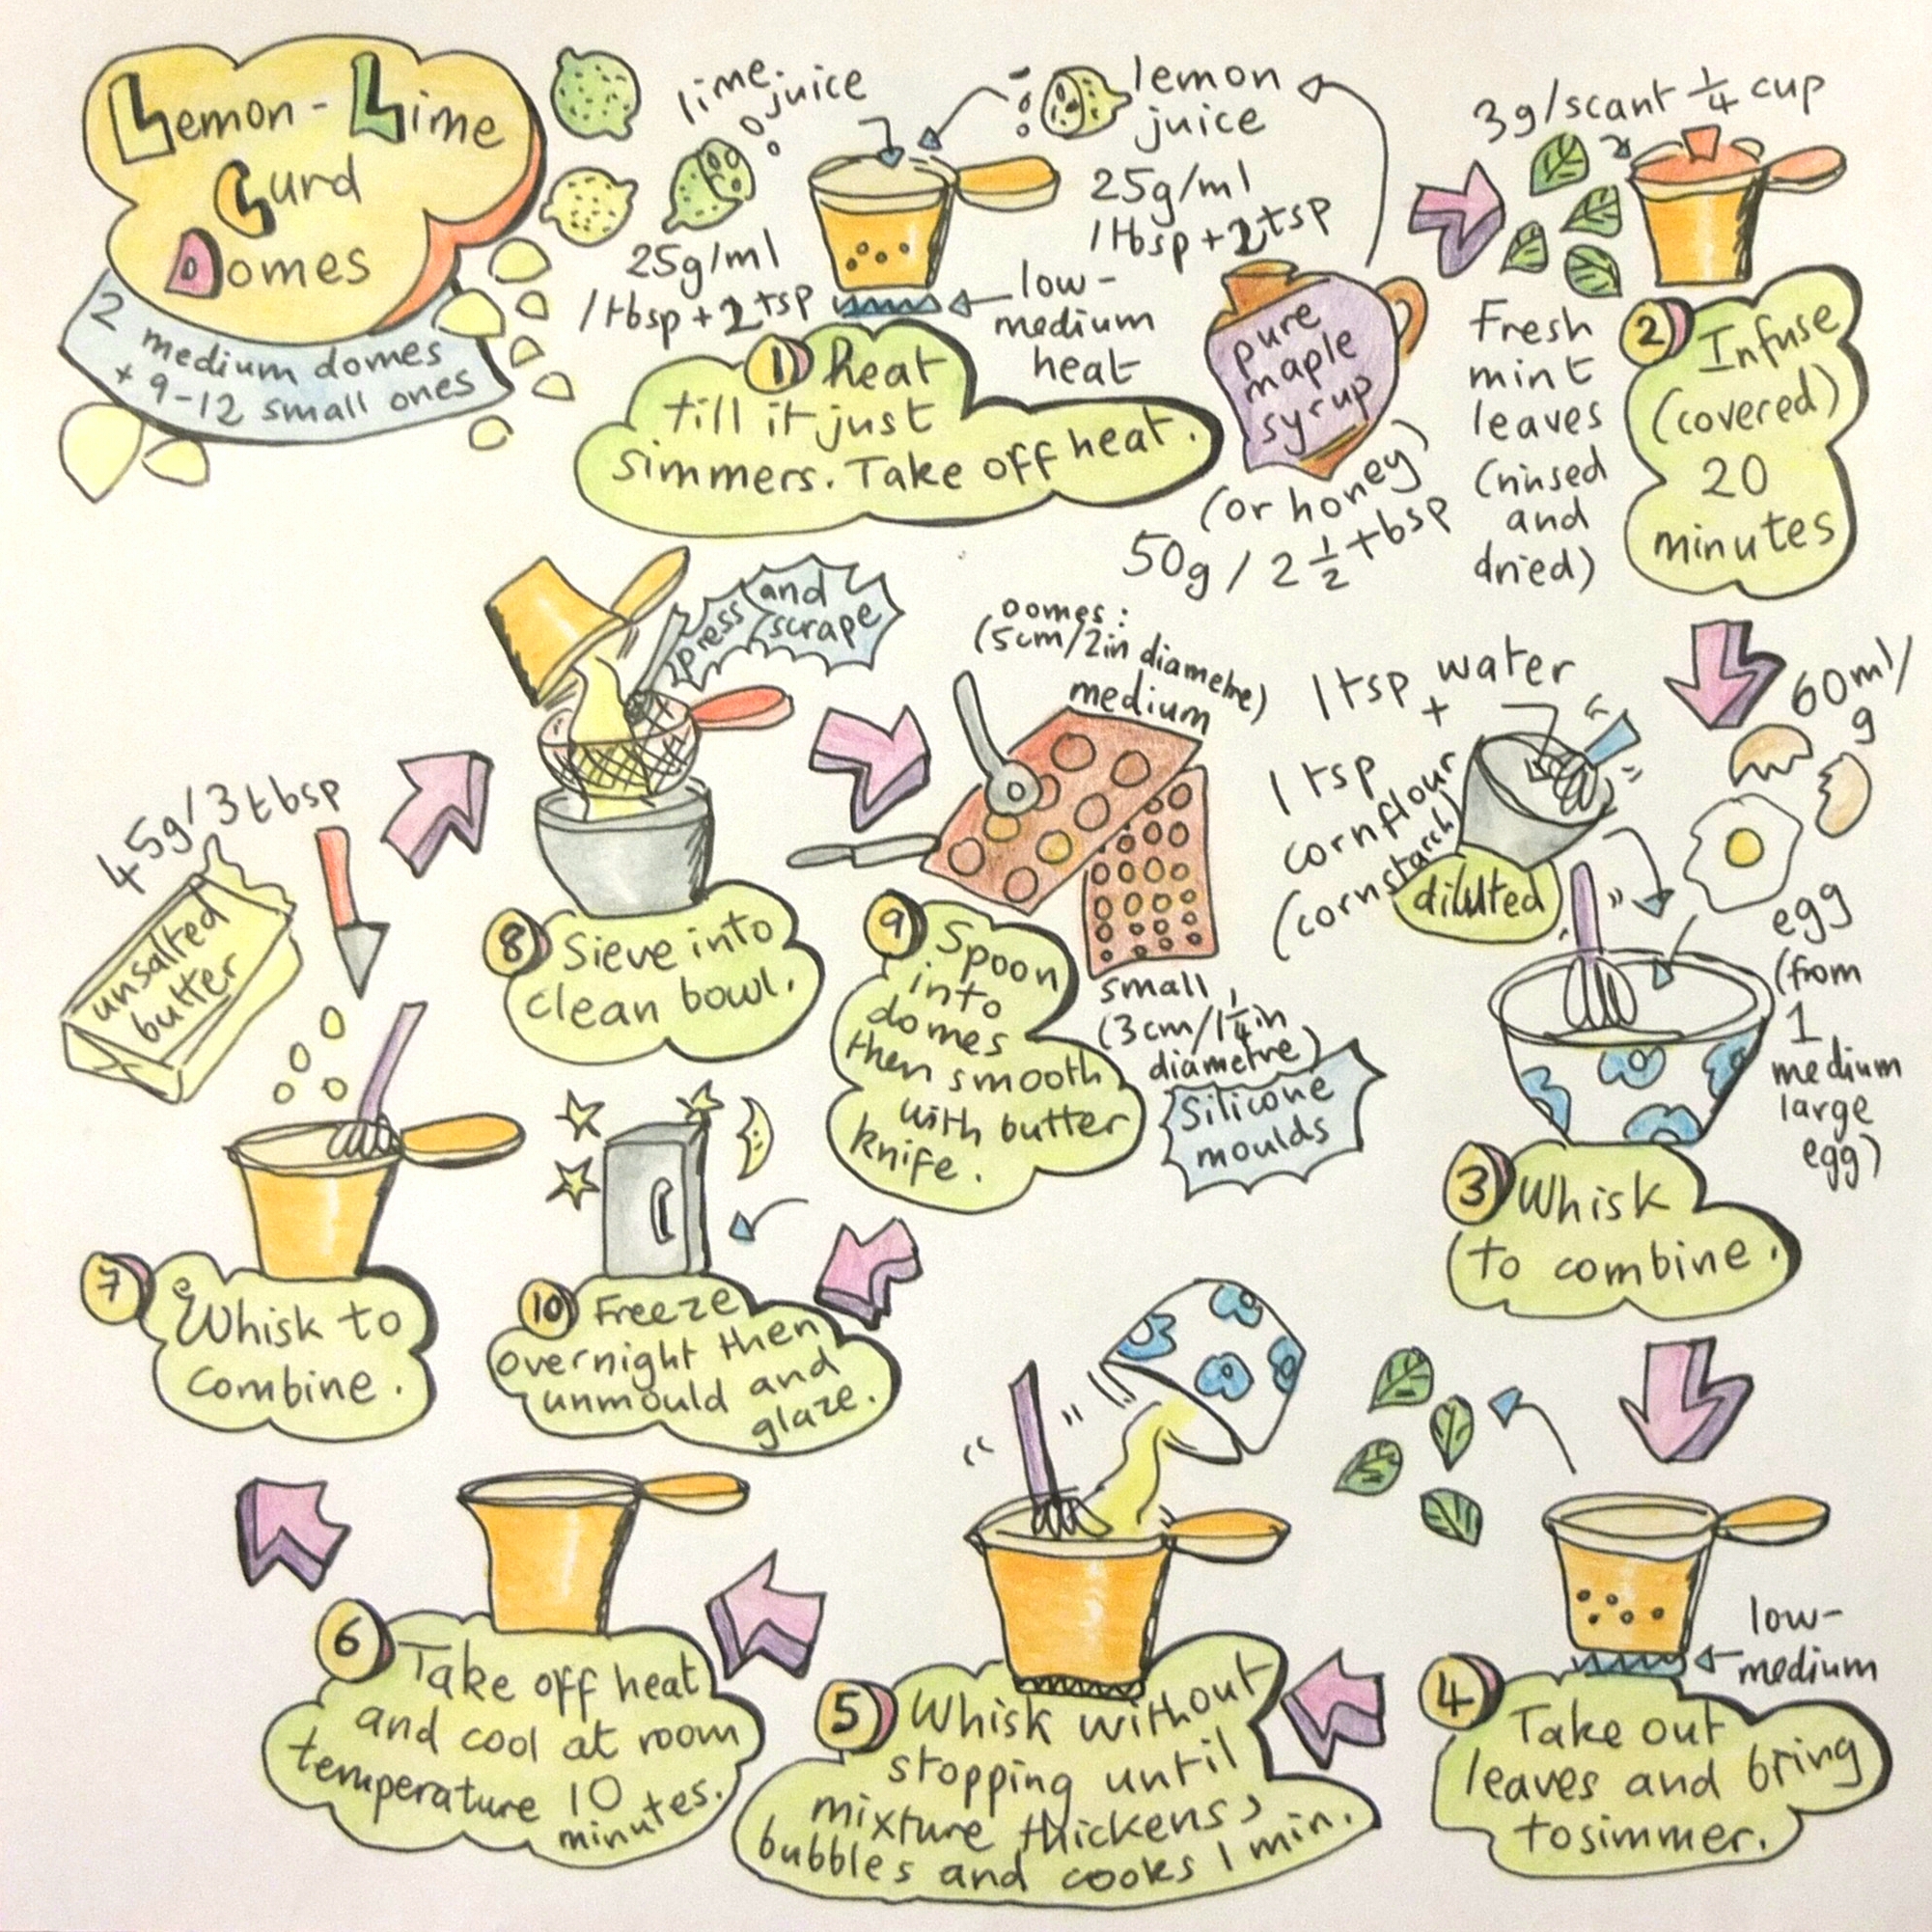 Lemon - Lime
Curd
Domes
2 medium domes
+ 9-12 small ones
lime juice
25g/ml
1tbsp + 2tsp
lemon
juice
25g/ml
1tbsp + 2tsp
low-
medium
heat
1 heat
till it just
simmers. Take off heat.
pure
maple
syrup
(or honey)
50g / 2 1/2 tbsp
3g/scant 1/4 cup
Fresh
mint
leaves
(rinsed
and
dried)
2 Infuse
(covered)
20
minutes
1 tsp water
+
1 tsp
cornflour
(cornstarch)
diluted
60ml/
g
egg
(from
1
medium
large
egg)
3 Whisk
to combine.
low-
medium
4 Take out
leaves and bring
to simmer.
5 Whisk without
stopping until
mixture thickens,
bubbles and cooks 1 min.
6 Take off heat
and cool at room
temperature 10
minutes.
45g/3tbsp
unsalted
butter
7 Whisk to
combine.
press and
scrape
8 Sieve into
clean bowl.
Domes:
(5cm/2in diametre)
medium
small
(3cm/1 1/4 in
diametre)
Silicone
moulds
9 Spoon
into
domes
then smooth
with butter
knife.
10 Freeze
overnight then
unmould and
glaze.